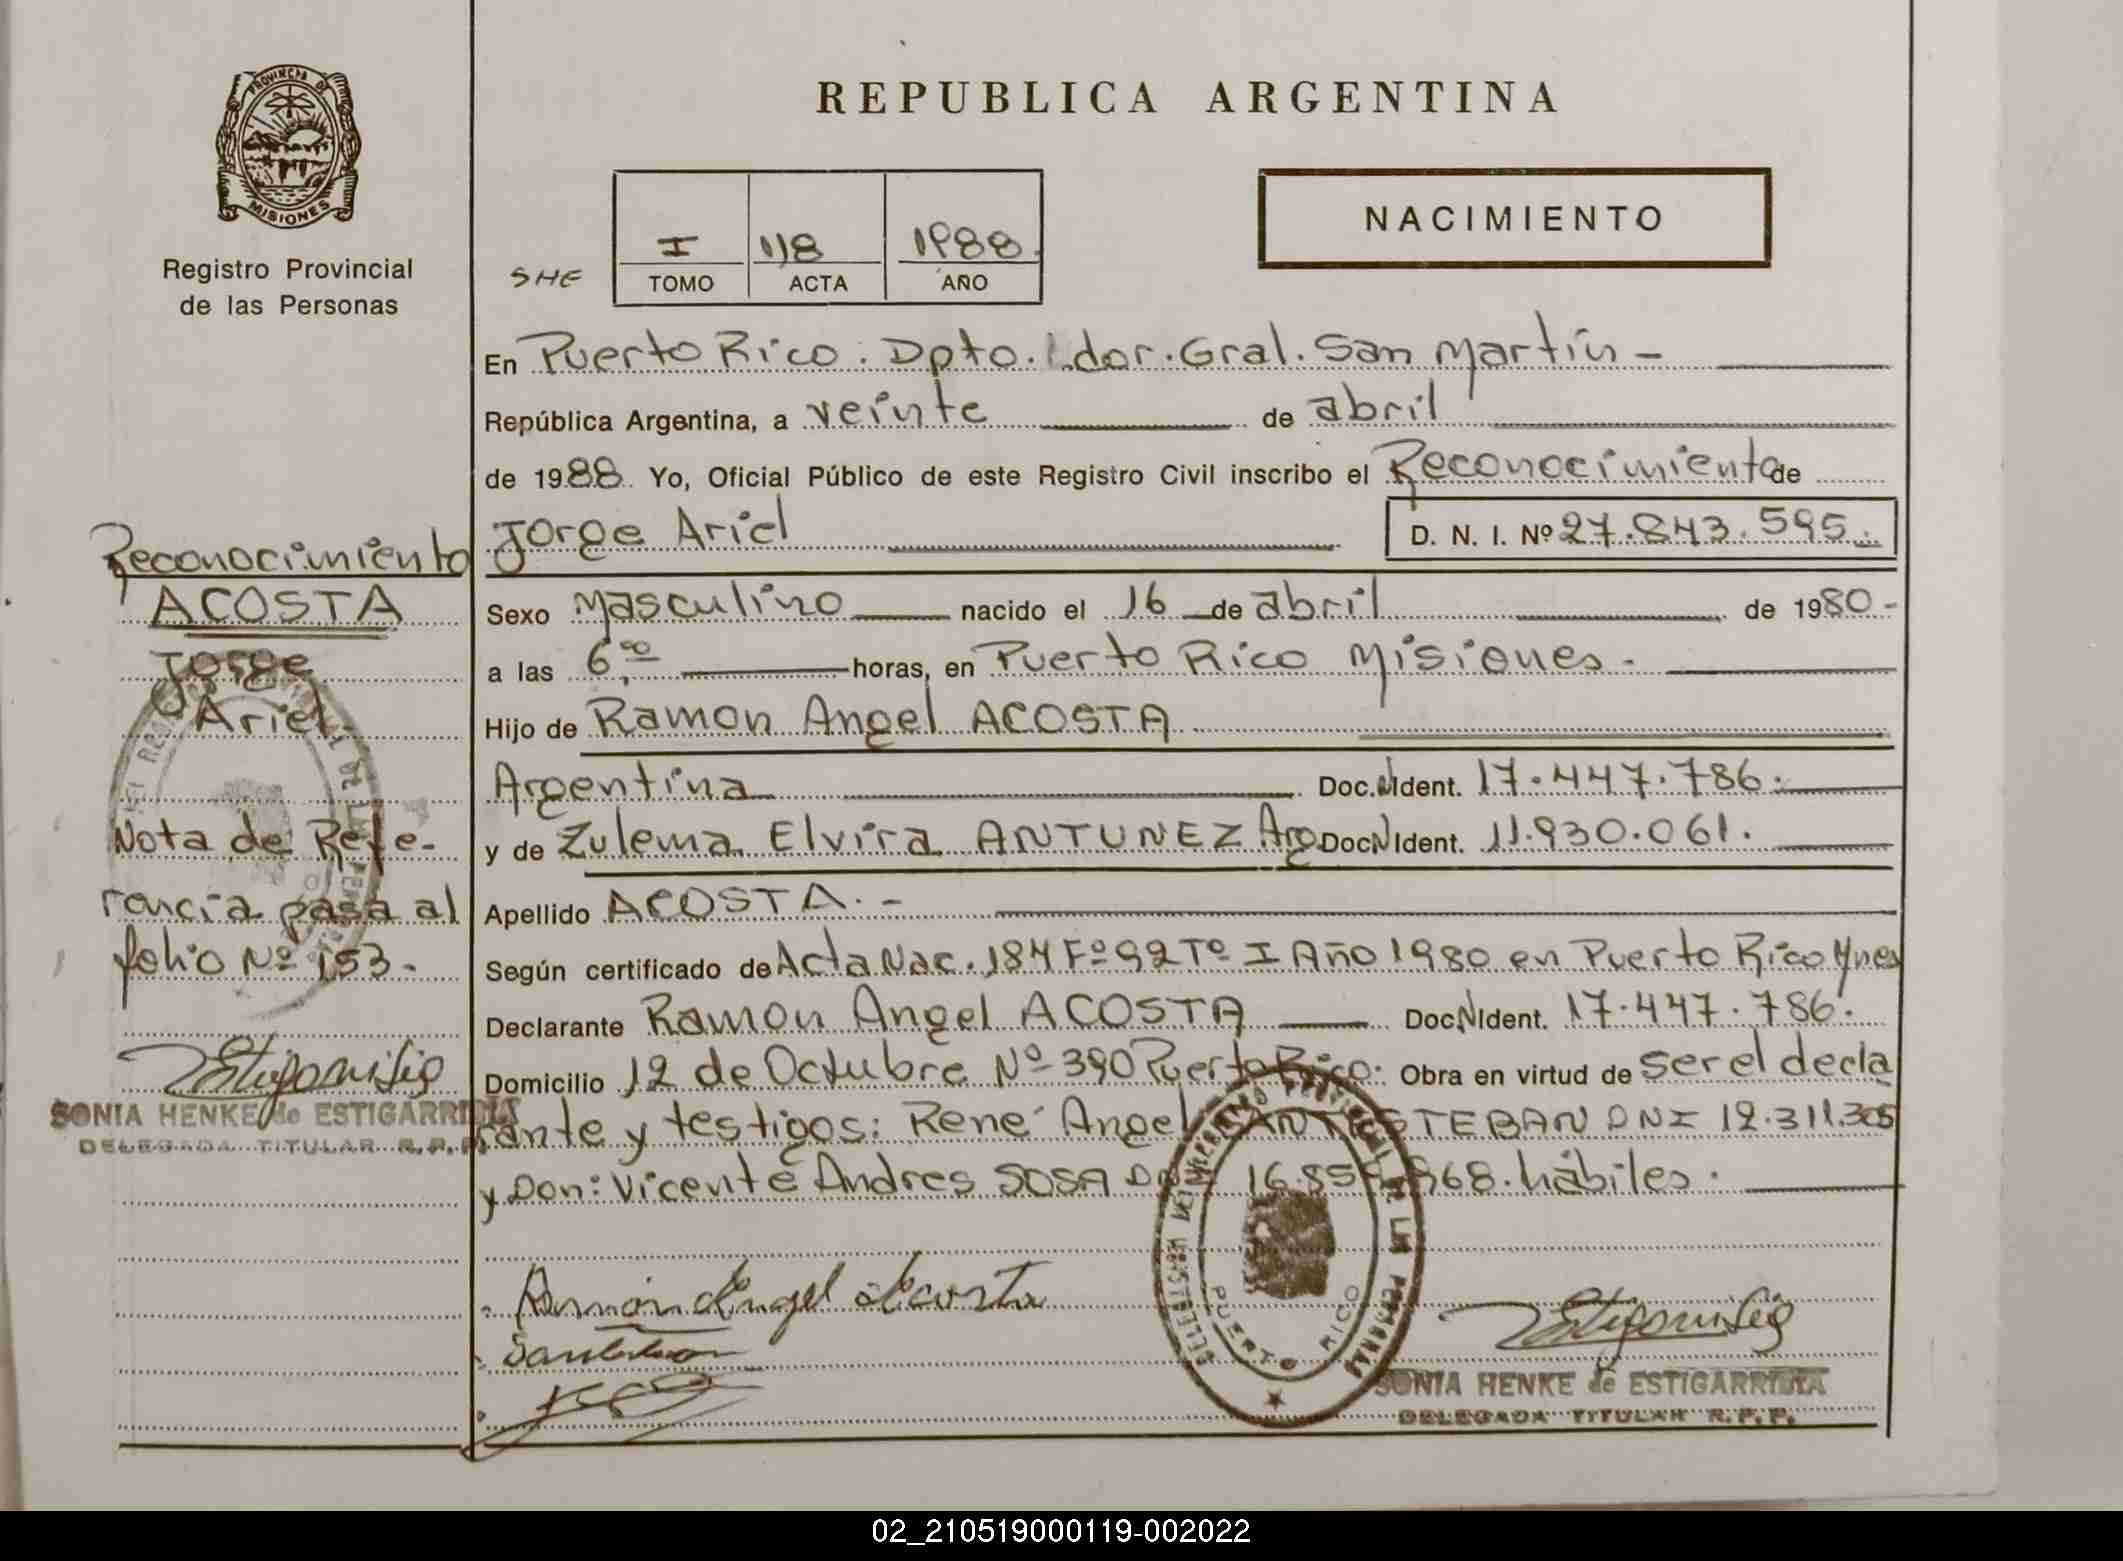 PROVINCIA DE
MISIONES
Registro Provincial
de las Personas
REPUBLICA ARGENTINA
NACIMIENTO
I 118 1988.
SHE TOMO ACTA AÑO
En Puerto Rico. Dpto. Ldor. Gral. San Martín -
República Argentina, a veinte de abril
de 1988. Yo, Oficial Público de este Registro Civil inscribo el Reconocimiento de
Jorge Ariel D. N. I. Nº 27.843.595.
Sexo Masculino nacido el 16 de abril de 1980-
a las 6,00 horas, en Puerto Rico Misiones.
Hijo de Ramon Angel ACOSTA
Argentina Doc.NIdent. 17.447.786.
y de Zulema Elvira ANTUNEZ Arg Doc.NIdent. 11.930.061.
Apellido ACOSTA. -
Según certificado de Acta Nac. 184 Fº 92 Tº I Año 1980 en Puerto Rico Mnes
Declarante Ramon Angel ACOSTA Doc.NIdent. 17.447.786.
Domicilio 12 de Octubre Nº 390 Puerto Rico. Obra en virtud de ser el decla
rante y testigos: René Angel SANTISTEBAN DNI 12.311.305
y Don: Vicente Andres SOSA DNI 16.85 968. hábiles.
Ramón Angel Acosta
PUERTO RICO
SONIA HENKE de ESTIGARRIBIA
DELEGADA TITULAR R.P.P.
Reconocimiento
ACOSTA
Jorge
Ariel
Nota de Refe-
rencia pasa al
folio Nº 153.
SONIA HENKE de ESTIGARRIBIA
DELEGADA TITULAR R.P.P.
02_210519000119-002022